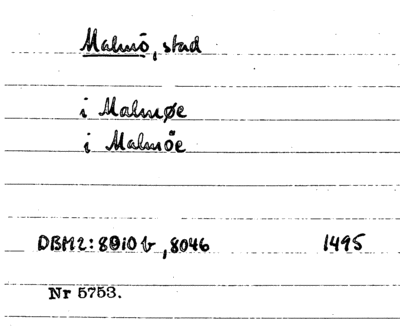 Malmö, stad
i Malmøe
i Malmöe
DBM2: 8010 b, 8046 1495
Nr 5753.